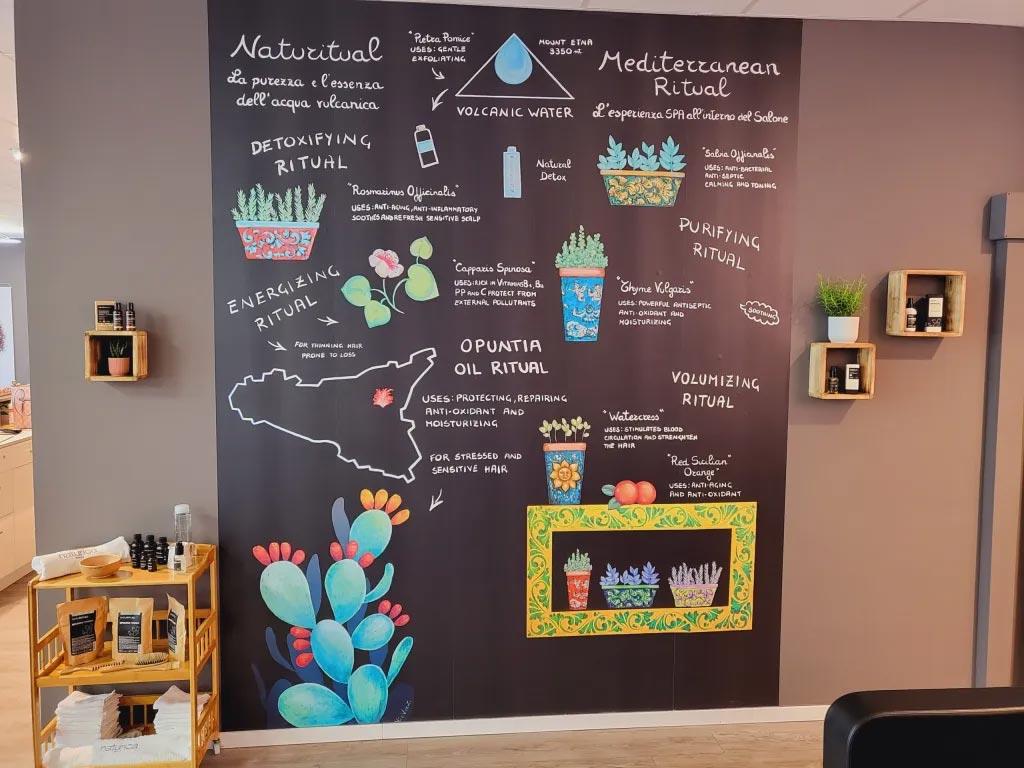 Naturitual
La purezza e l'essenza
dell'acqua vulcanica
"Pietra Pomice"
USES: GENTLE
EXFOLIATING
MOUNT ETNA
3350 mt
VOLCANIC WATER
Mediterranean
Ritual
L'esperienza SPA all'interno del Salone
DETOXIFYING
RITUAL
Natural
Detox
"Salvia Officinalis"
USES: ANTI-BACTERIAL
ANTI-SEPTIC
CALMING AND TONING
"Rosmarinus Officinalis"
USES: ANTI-AGING, ANTI-INFLAMMATORY
SOOTHES AND REFRESH SENSITIVE SCALP
PURIFYING
RITUAL
ENERGIZING
RITUAL
"Capparis Spinosa"
USES: RICH IN VITAMINS B1, B2
PP AND C PROTECT FROM
EXTERNAL POLLUTANTS
"Thyme Vulgaris"
USES: POWERFUL ANTISEPTIC
ANTI-OXIDANT AND
MOISTURIZING
SOOTHING
FOR THINNING HAIR
PRONE TO LOSS
OPUNTIA
OIL RITUAL
USES: PROTECTING, REPAIRING
ANTI-OXIDANT AND
MOISTURIZING
FOR STRESSED AND
SENSITIVE HAIR
VOLUMIZING
RITUAL
"Watercress"
USES: STIMULATES BLOOD
CIRCULATION AND STRENGHTEN
THE HAIR
"Red Sicilian"
Orange"
USES: ANTI-AGING
AND ANTI-OXIDANT
naturica
naturica